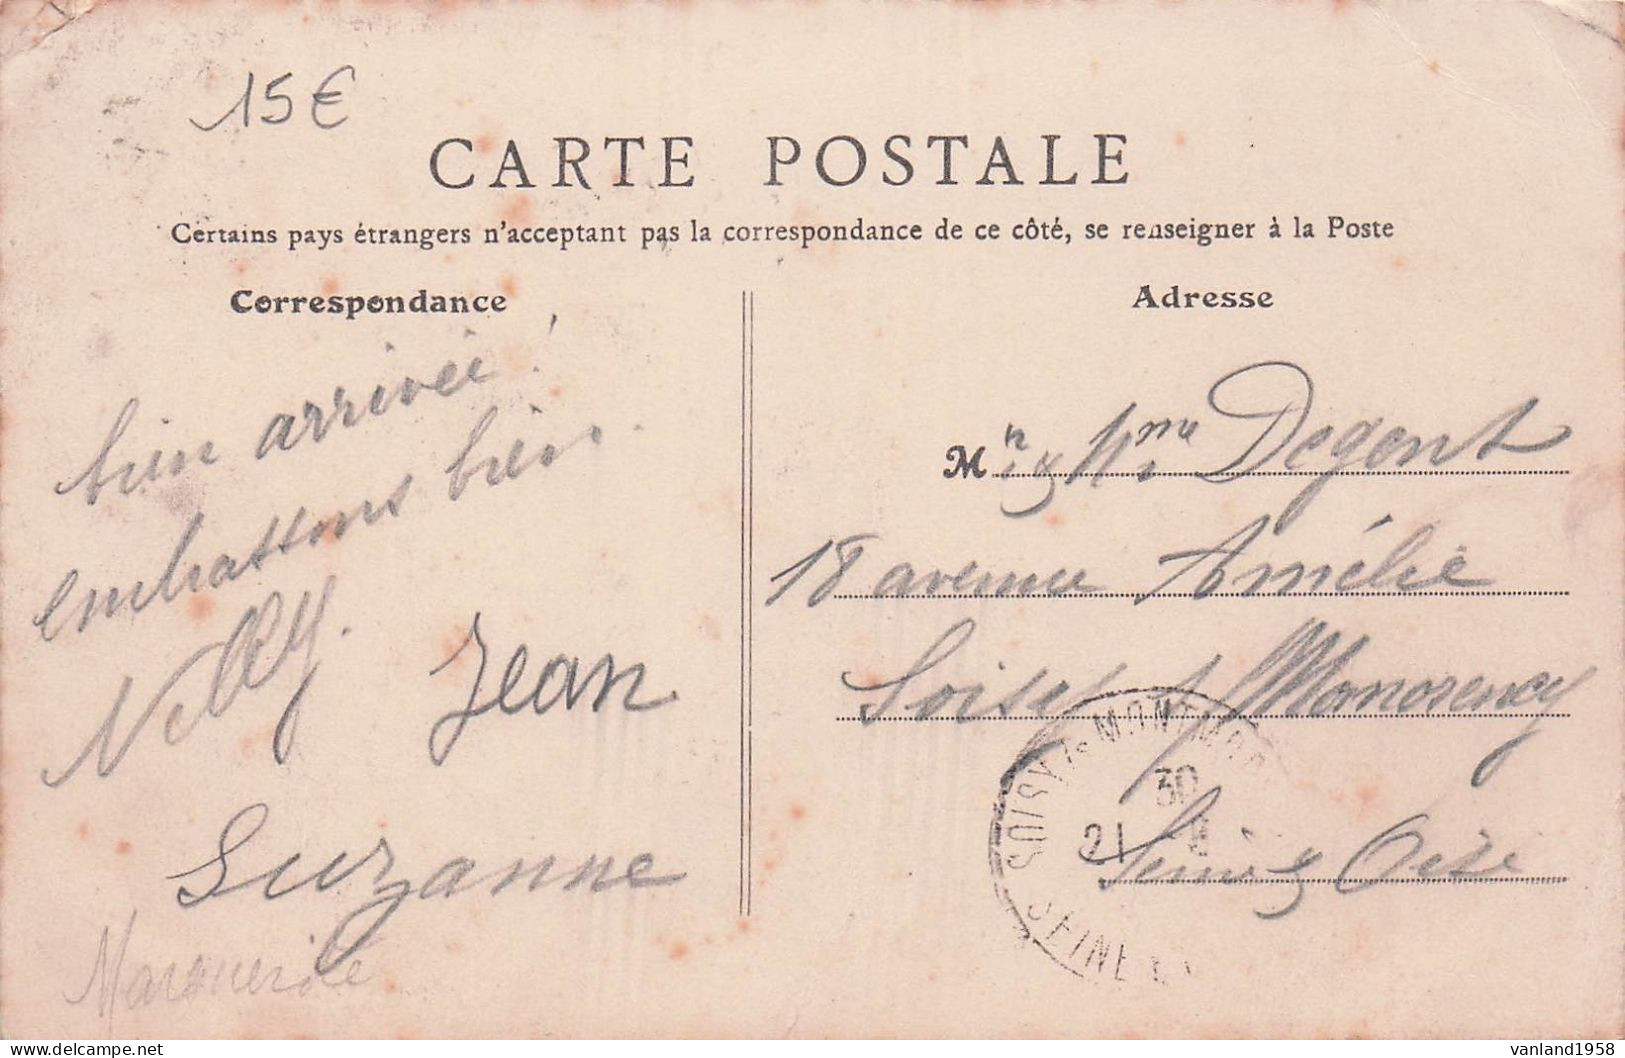 15€
CARTE POSTALE
Certains pays étrangers n'acceptant pas la correspondance de ce côté, se renseigner à la Poste
Correspondance
Adresse
bien arrivée!
embrassons bien.
Nelly.
Jean
Suzanne
Marguerite
M r & Mme Degent
18 avenue Amélie
Soisy s/ Monmorency
Seine & Oise
SOISY-Ss-MONTMOR
30
21
SEINE
vanland1958